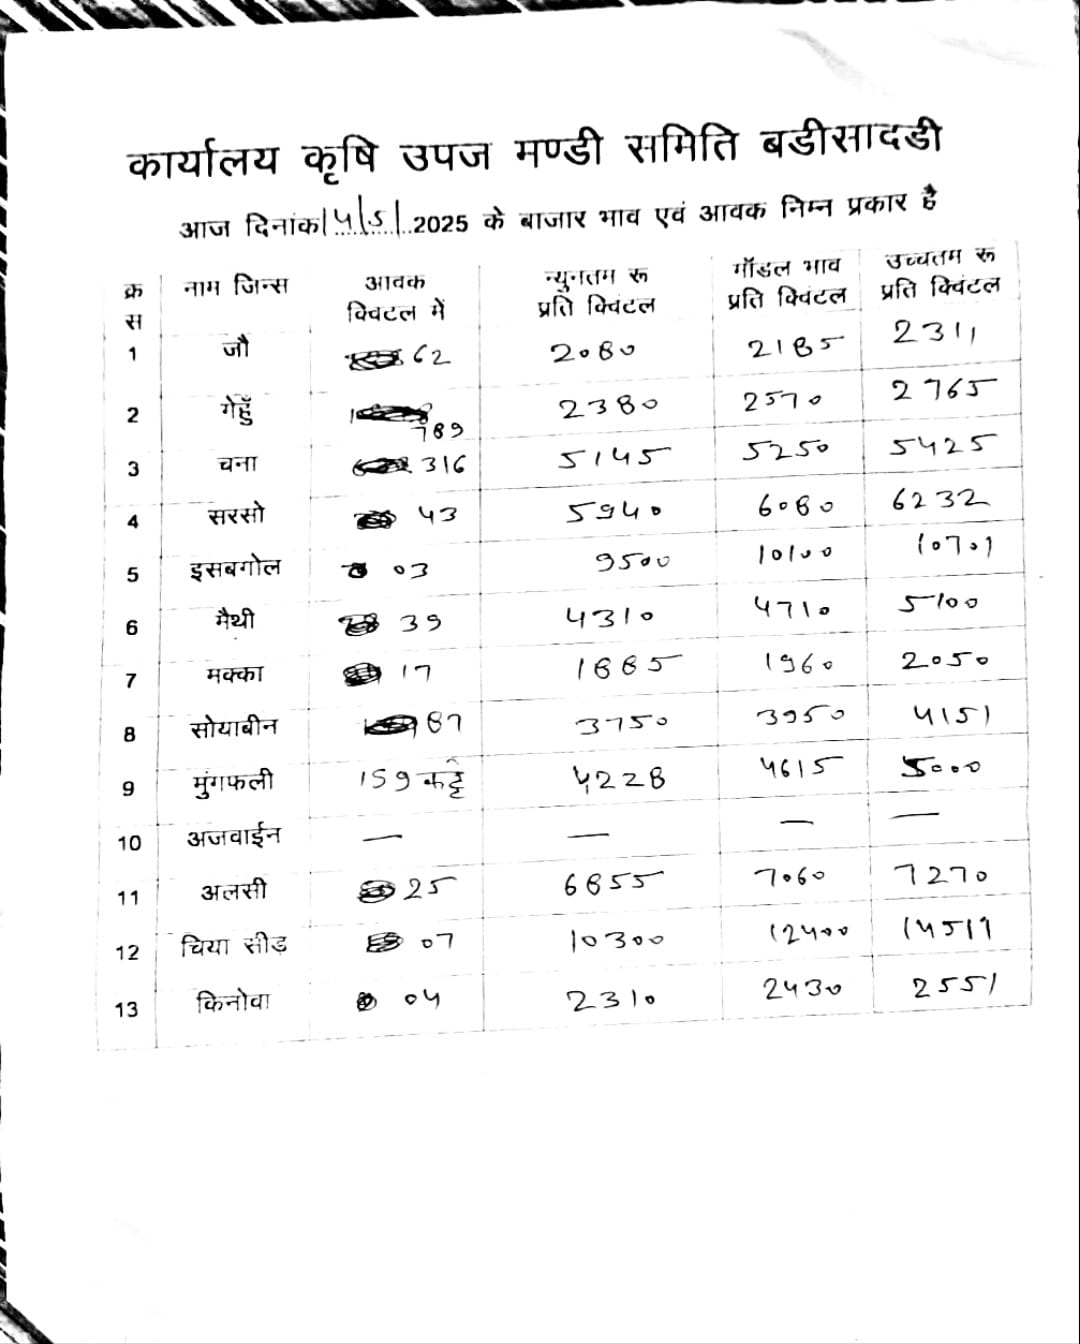 कार्यालय कृषि उपज मण्डी समिति बडीसादडी
आज दिनांक 14/5/2025 के बाजार भाव एवं आवक निम्न प्रकार है
क्र स नाम जिन्स आवक क्विटल में न्युनतम रू प्रति क्विंटल मॉडल भाव प्रति क्विंटल उच्चतम रू प्रति क्विंटल
1 जौ 62 2080 2185 2311
2 गेहुँ 789 2380 2570 2765
3 चना 316 5145 5250 5425
4 सरसो 43 5940 6080 6232
5 इसबगोल 03 9500 10100 10701
6 मैथी 39 4310 4710 5100
7 मक्का 17 1885 1960 2050
8 सोयाबीन 87 3750 3950 4151
9 मुंगफली 159 कट्टे 4228 4615 5000
10 अजवाईन — — — —
11 अलसी 25 6855 7060 7270
12 चिया सीड़ 07 10300 12400 14511
13 किनोवा 04 2310 2430 2551